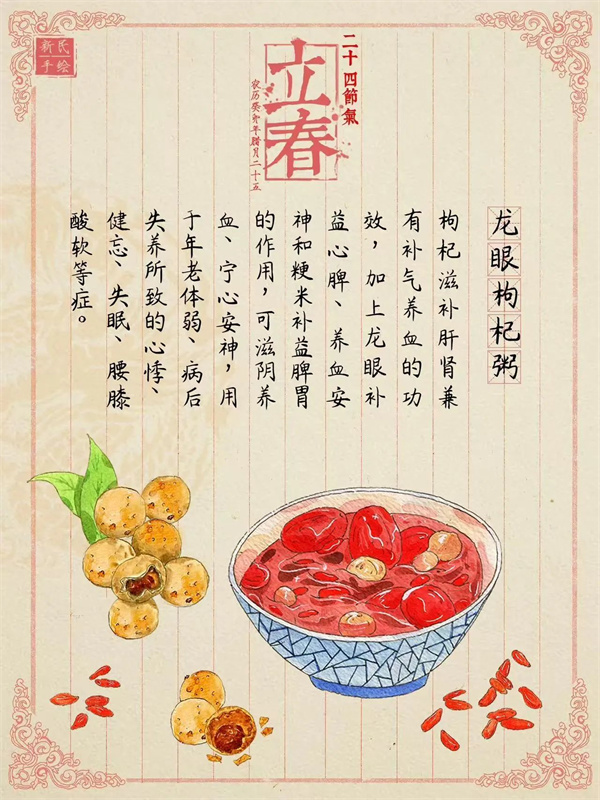 新民
手绘
二十四節氣
立春
农历癸卯年腊月二十五
龙眼枸杞粥
枸杞滋补肝肾兼
有补气养血的功
效，加上龙眼补
益心脾、养血安
神和粳米补益脾胃
的作用，可滋阴养
血、宁心安神，用
于年老体弱、病后
失养所致的心悸、
健忘、失眠、腰膝
酸软等症。